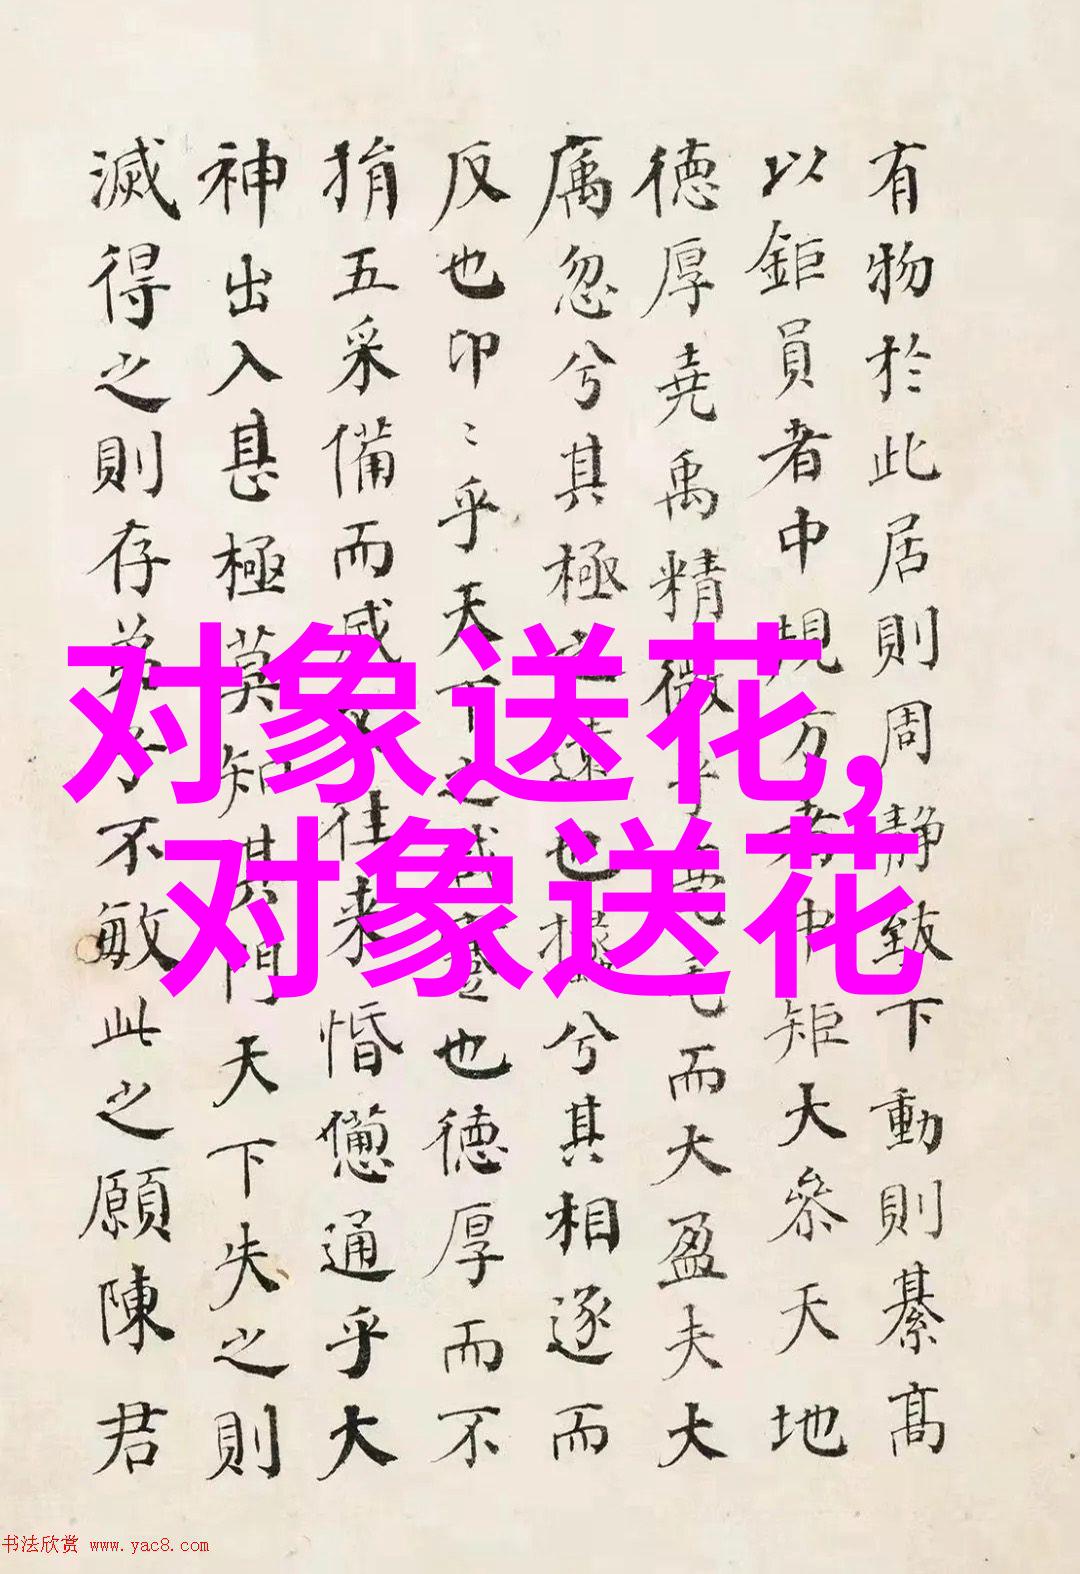 对象送花,
对象送花
有物於此居則周静致下動則綦高
以鉅員者中規方者中矩大參天地
德厚堯禹精微乎毫毛而大盈夫大
忽兮其極之遠也攭兮其相逐而
反也卬〻乎天下之咸蹇也德厚而不
捐五采備而成文往来惛憊通乎大
神出入甚極莫知其門天下失之則
滅得之則存弟子不敏此之願陳君
书法欣赏 www.yac8.com